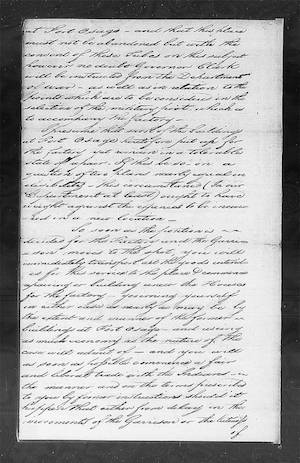 at Fort Osage - and that this place
must not be abandoned but with the
consent of these Tribes on this subject
however no doubt Governor Clark
will be instructed from the Department
of war - as well as in relation to the
points which are to be considered in the
selection of the military site which is
to accompany the factory -
I presume that most of the buildings
at Fort Osage heretofore put up for
the factory yet remain in a tolerable
state of repair. If this be so - in a
question of two plans nearly equal in
eligibility - this circumstance (in our
Department at least) ought to have
weight against the expense to be incurred
in a new location -
So soon as the position is
decided for the Factory and the Garrison
moves to the spot you will
immediately transport all the goods
as for this service to the place
or building under the Houses
for the factory - governing yourself
in the scale as nearly as may be by
the extent and number of the former
buildings at Fort Osage - and using
as much economy as the nature of the
case will admit of - and you will
as soon as possible commence a fair
and liberal trade with the Indians - in
the manner and on the terms prescribed
to you by former instructions should it
happen that either from delay in the
movements of the Garrison or the
of